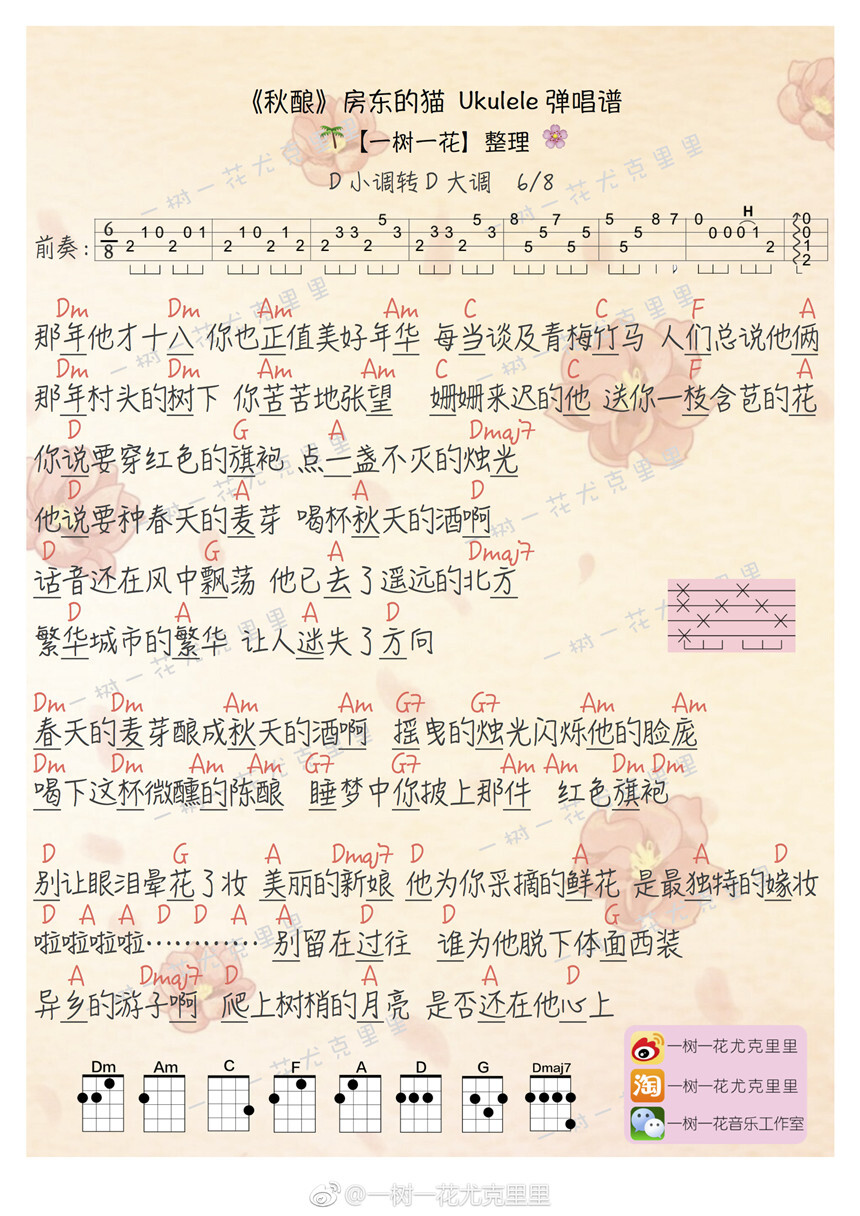 《秋酿》房东的猫 Ukulele 弹唱谱
【一树一花】整理
D 小调转 D 大调 6/8
前奏:
H
Dm Dm Am Am C C F A
那年他才十八 你也正值美好年华 每当谈及青梅竹马 人们总说他俩
Dm Dm Am Am C C F A
那年村头的树下 你苦苦地张望 姗姗来迟的他 送你一枝含苞的花
D G A Dmaj7
你说要穿红色的旗袍 点一盏不灭的烛光
D A A D
他说要种春天的麦芽 喝杯秋天的酒啊
D G A Dmaj7
话音还在风中飘荡 他已去了遥远的北方
D A A D
繁华城市的繁华 让人迷失了方向
Dm Dm Am Am G7 G7 Am Am
春天的麦芽酿成秋天的酒啊 摇曳的烛光闪烁他的脸庞
Dm Dm Am Am G7 G7 Am Am Dm Dm
喝下这杯微醺的陈酿 睡梦中你披上那件 红色旗袍
D G A Dmaj7 D A A D
别让眼泪晕花了妆 美丽的新娘 他为你采摘的鲜花 是最独特的嫁妆
D A A D D A A D D G
啦啦啦啦………… 别留在过往 谁为他脱下体面西装
A Dmaj7 D A A D
异乡的游子啊 爬上树梢的月亮 是否还在他心上
Dm Am C F A D G Dmaj7
一树一花尤克里里
淘 一树一花尤克里里
一树一花音乐工作室
@一树一花尤克里里